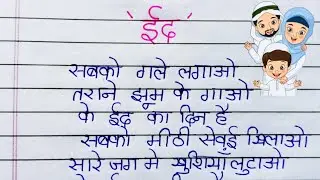 'ईद'
सबको गले लगाओ
तराने झूम के गाओ
के ईद का दिन है
सबको मीठी सेवई खिलाओ
सारे जग मे खुशियाँ लुटाओ